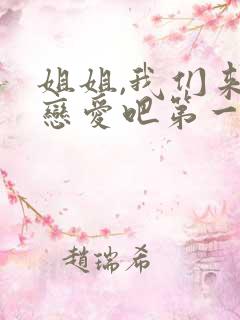 姐姐,我们来
戀愛吧第一
趙瑞希